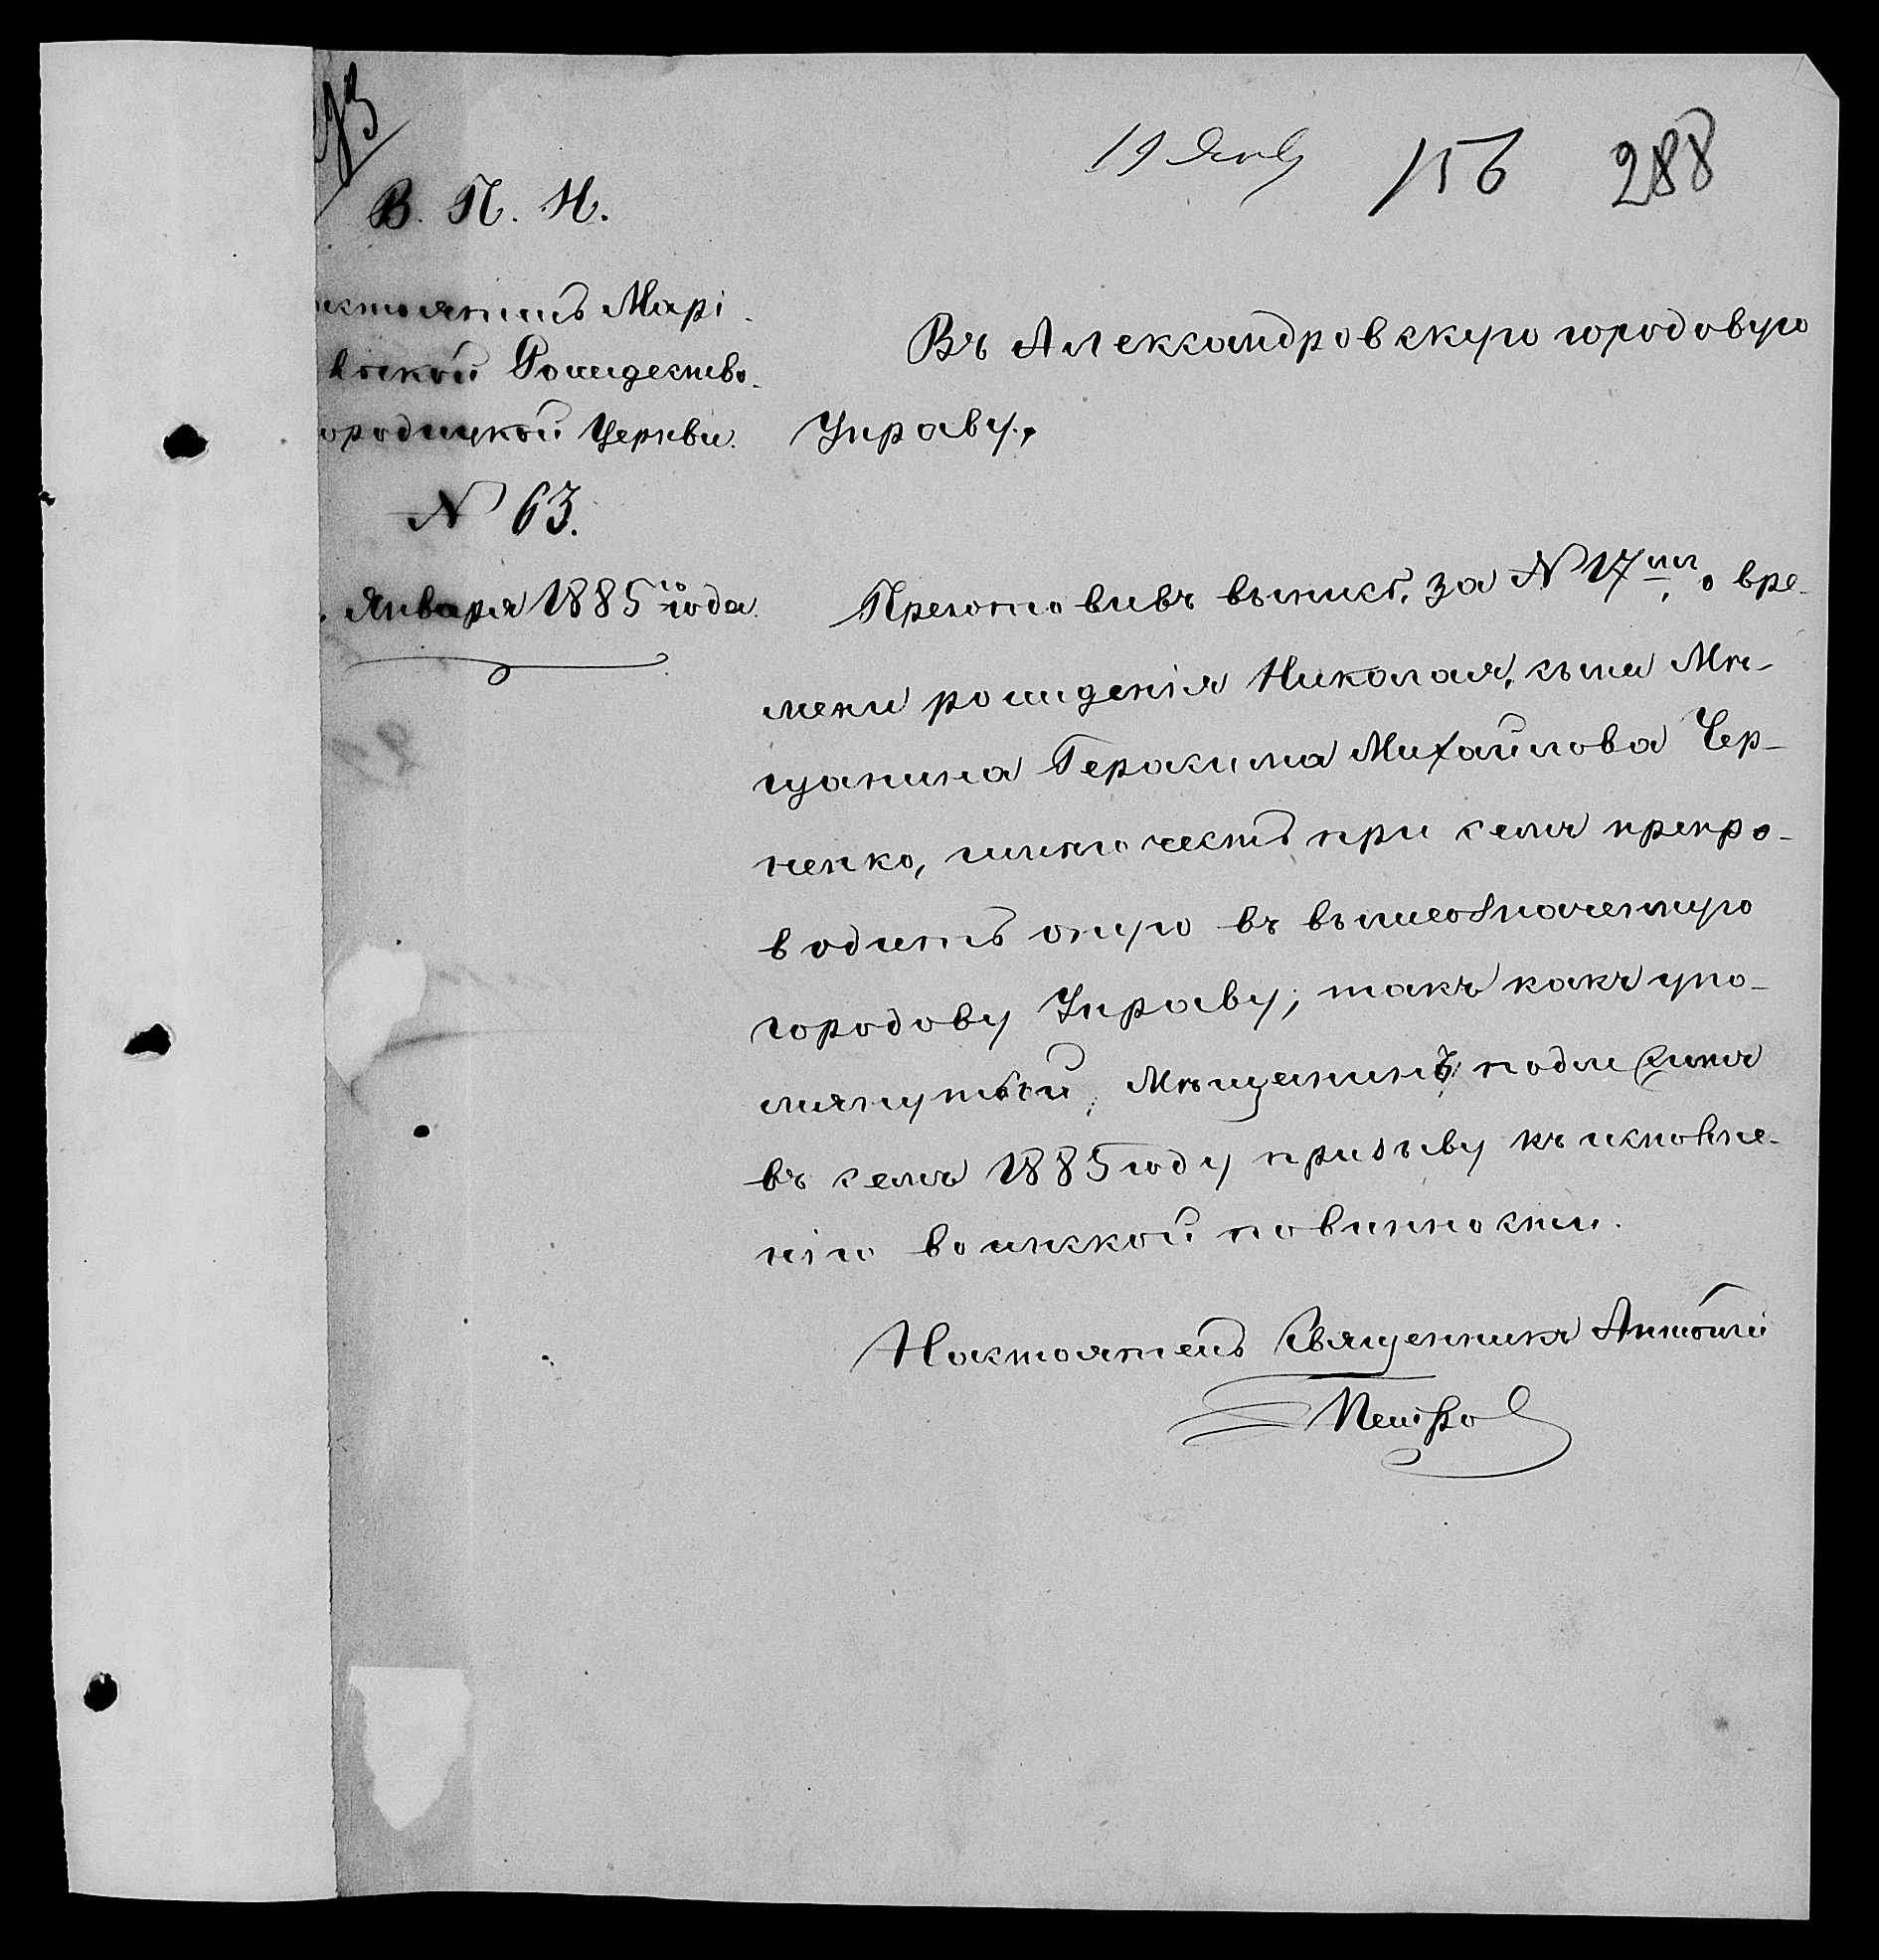 93
19 Янв
156
288
В. П. И.
астоятель Марі-
вской Рождество-
ородицкой Церкви.
N 63.
Января 1885го года.
Въ Александровскую городовую
Управу.
Приготовивъ выпись, за N 17мъ, о вре-
мени рожденія Николая, сына Мѣ-
щанина Герасима Михайлова Чер-
ненко, имѣю честь при семъ препро-
водить оную въ вышеозначенную
городову Управу; такъ какъ упо-
мянутый Мѣщанинъ подлежитъ
въ семъ 1885 году призыву къ исполне-
нію воинской повинности.
Настоятель Священникъ Антоній
Петро